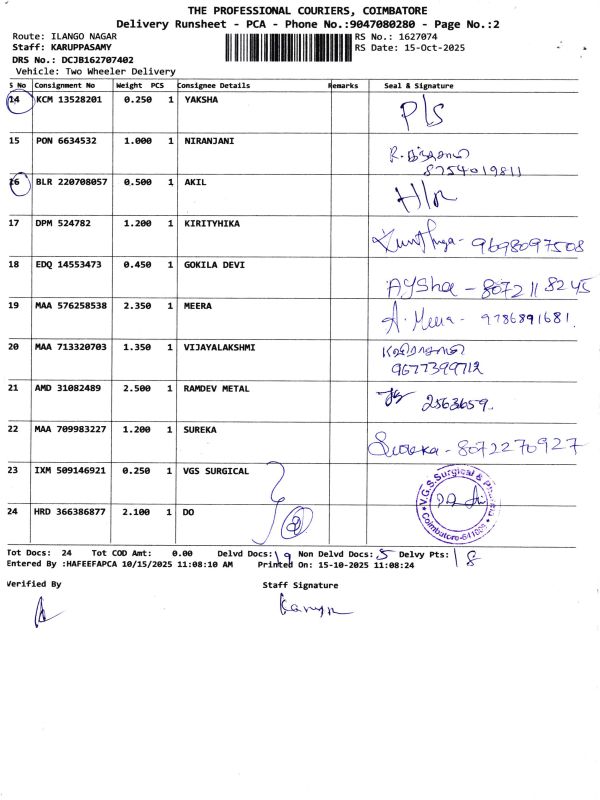 THE PROFESSIONAL COURIERS, COIMBATORE
Delivery Runsheet - PCA - Phone No.:9047080280 - Page No.:2
Route: ILANGO NAGAR RS No.: 1627074
Staff: KARUPPASAMY RS Date: 15-Oct-2025
DRS No.: DCJB162707402
Vehicle: Two Wheeler Delivery
S No Consignment No Weight PCS Consignee Details Remarks Seal & Signature
14 KCM 13528201 0.250 1 YAKSHA P/S
15 PON 6634532 1.000 1 NIRANJANI
8754019811
16 BLR 220708057 0.500 1 AKIL
17 DPM 524782 1.200 1 KIRITYHIKA 9698097508
18 EDQ 14553473 0.450 1 GOKILA DEVI AYSha - 8072118245
19 MAA 576258538 2.350 1 MEERA A. Meera - 9786891681
20 MAA 713320703 1.350 1 VIJAYALAKSHMI
9677399712
21 AMD 31082489 2.500 1 RAMDEV METAL 2563659
22 MAA 709983227 1.200 1 SUREKA Sureka - 8072270927
23 IXM 509146921 0.250 1 VGS SURGICAL V.G.S. Surgical &
24 HRD 366386877 2.100 1 DO 2 Coimbatore
Tot Docs: 24 Tot COD Amt: 0.00 Delvd Docs: 19 Non Delvd Docs: 5 Delvy Pts: 18
Entered By :HAFEEFAPCA 10/15/2025 11:08:10 AM Printed On: 15-10-2025 11:08:24
Verified By Staff Signature